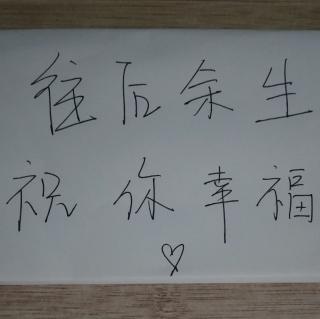 往后余生
祝你幸福